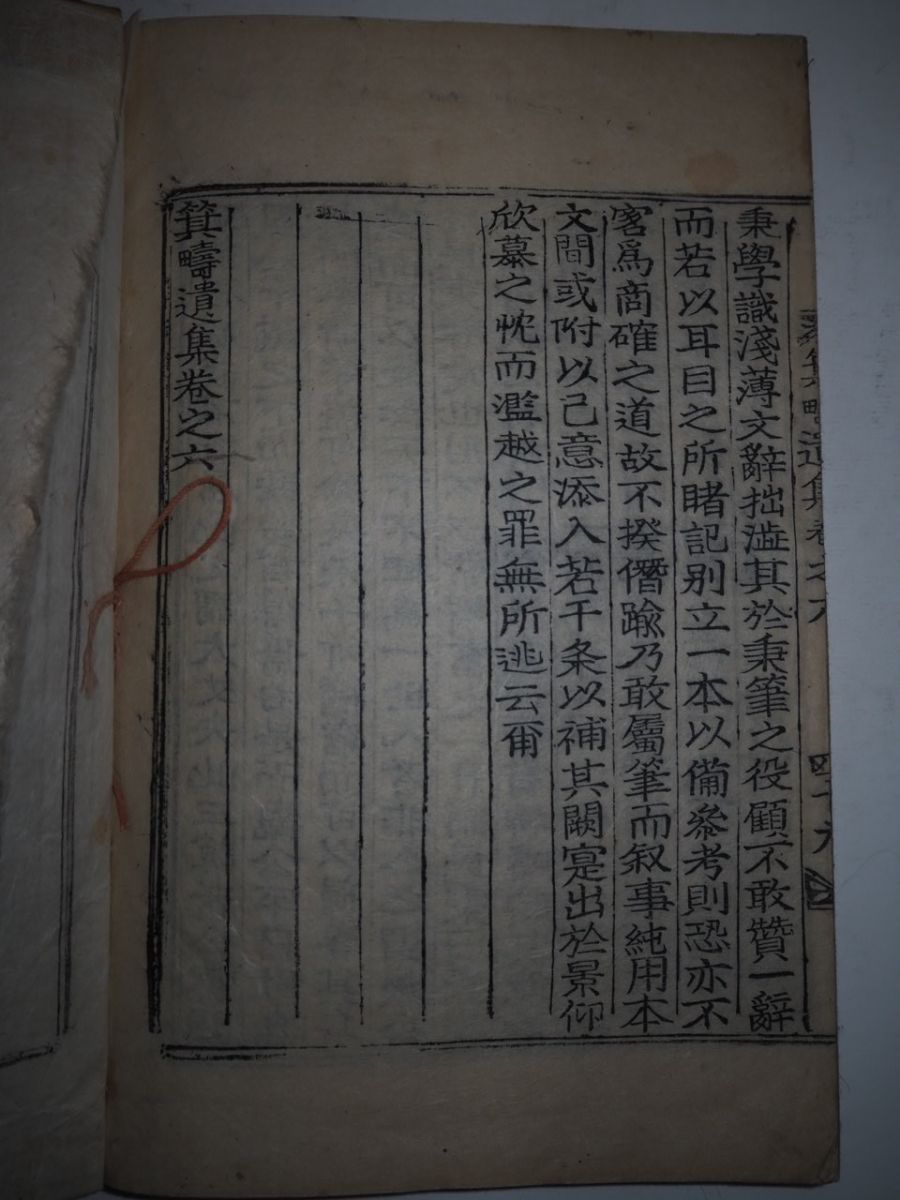 秉學識淺薄文辭拙澁其於秉筆之役顧不敢贊一辭
而若以耳目之所睹記别立一本以備參考則恐亦不
害爲商確之道故不揆僭踰乃敢屬筆而叙事純用本
文間或附以己意添入若干条以補其闕寔出於景仰
欣慕之忱而濫越之罪無所逃云爾
箕疇遺集卷之六